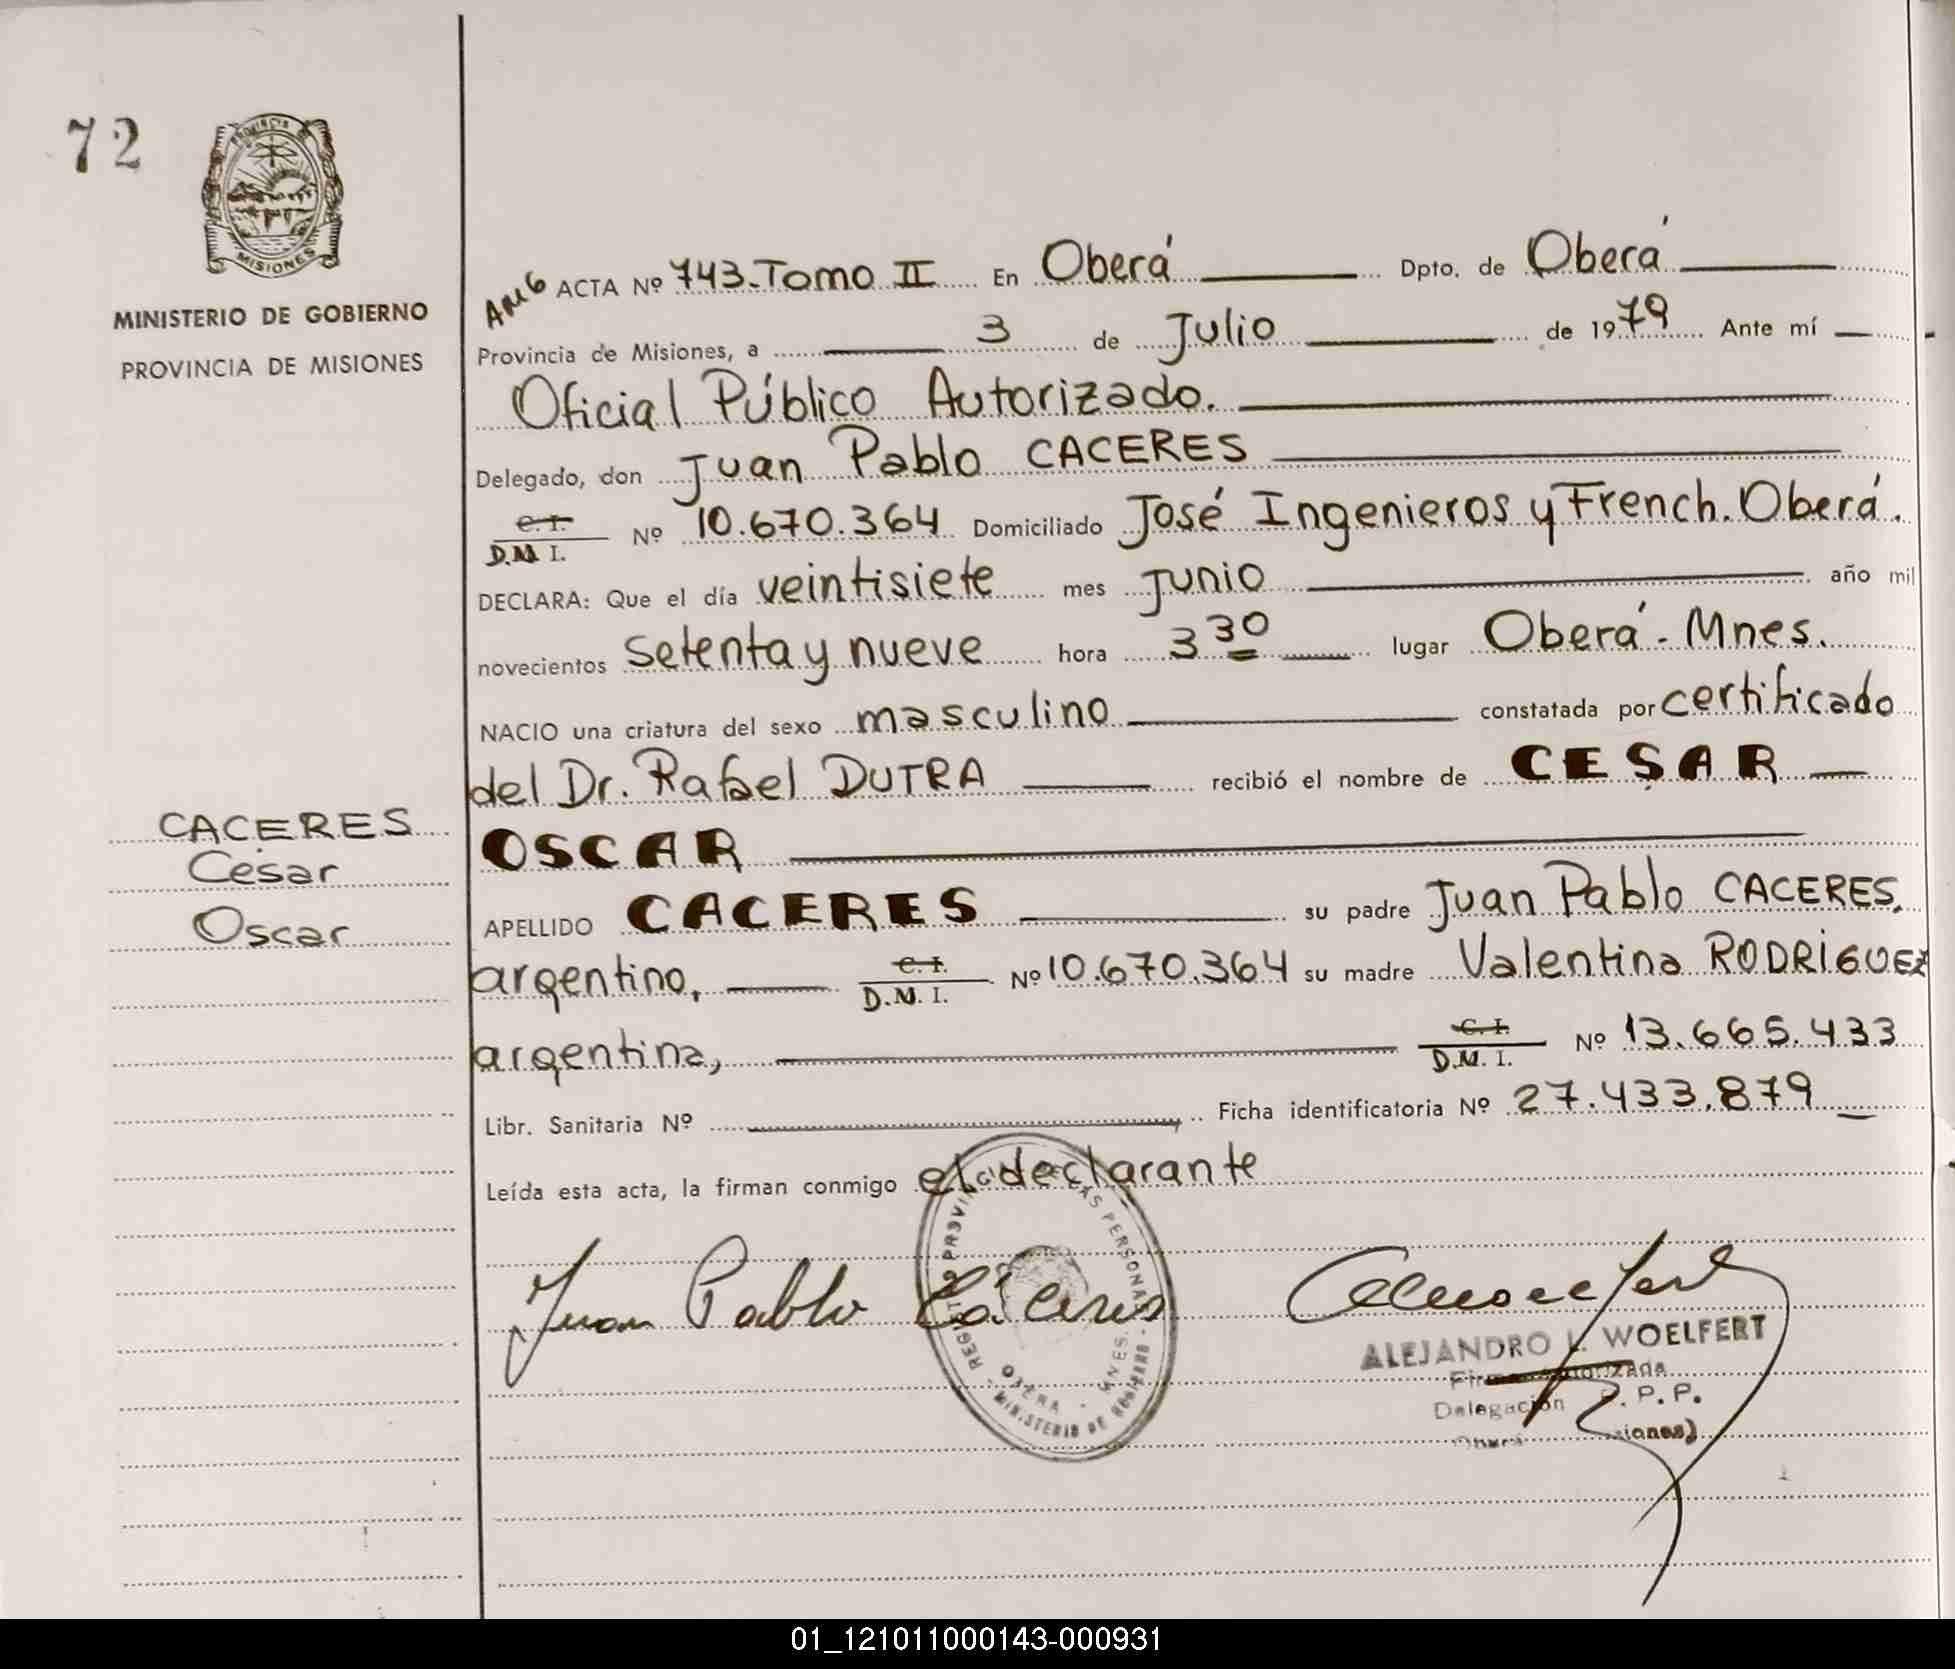 72
PROVINCIA DE
MISIONES
MINISTERIO DE GOBIERNO
PROVINCIA DE MISIONES
ACTA Nº 743. Tomo II En Oberá Dpto. de Oberá
Provincia de Misiones, a 3 de Julio de 1979 Ante mí
Oficial Público Autorizado.
Delegado, don Juan Pablo CACERES
C. I.
D.N.I. Nº 10.670.364 Domiciliado José Ingenieros y French. Oberá.
DECLARA: Que el día veintisiete mes Junio año mil
novecientos setenta y nueve hora 3 30 lugar Oberá - Mnes.
NACIO una criatura del sexo masculino constatada por certificado
del Dr. Rafael DUTRA recibió el nombre de CESAR
OSCAR
APELLIDO CACERES su padre Juan Pablo CACERES.
argentino, C. I.
D.N.I. Nº 10.670.364 su madre Valentina RODRÍGUEZ
argentina, C. I.
D.N.I. Nº 13.665.433
Libr. Sanitaria Nº Ficha identificatoria Nº 27.433.879
Leída esta acta, la firman conmigo el declarante
CACERES
César
Oscar
Juan Pablo Cáceres
PERSONAS
OBERA - MNES.
MINISTERIO DE GOBIERNO
ALEJANDRO L. WOELFERT
Firma Autorizada
Delegación R. P. P.
01_121011000143-000931